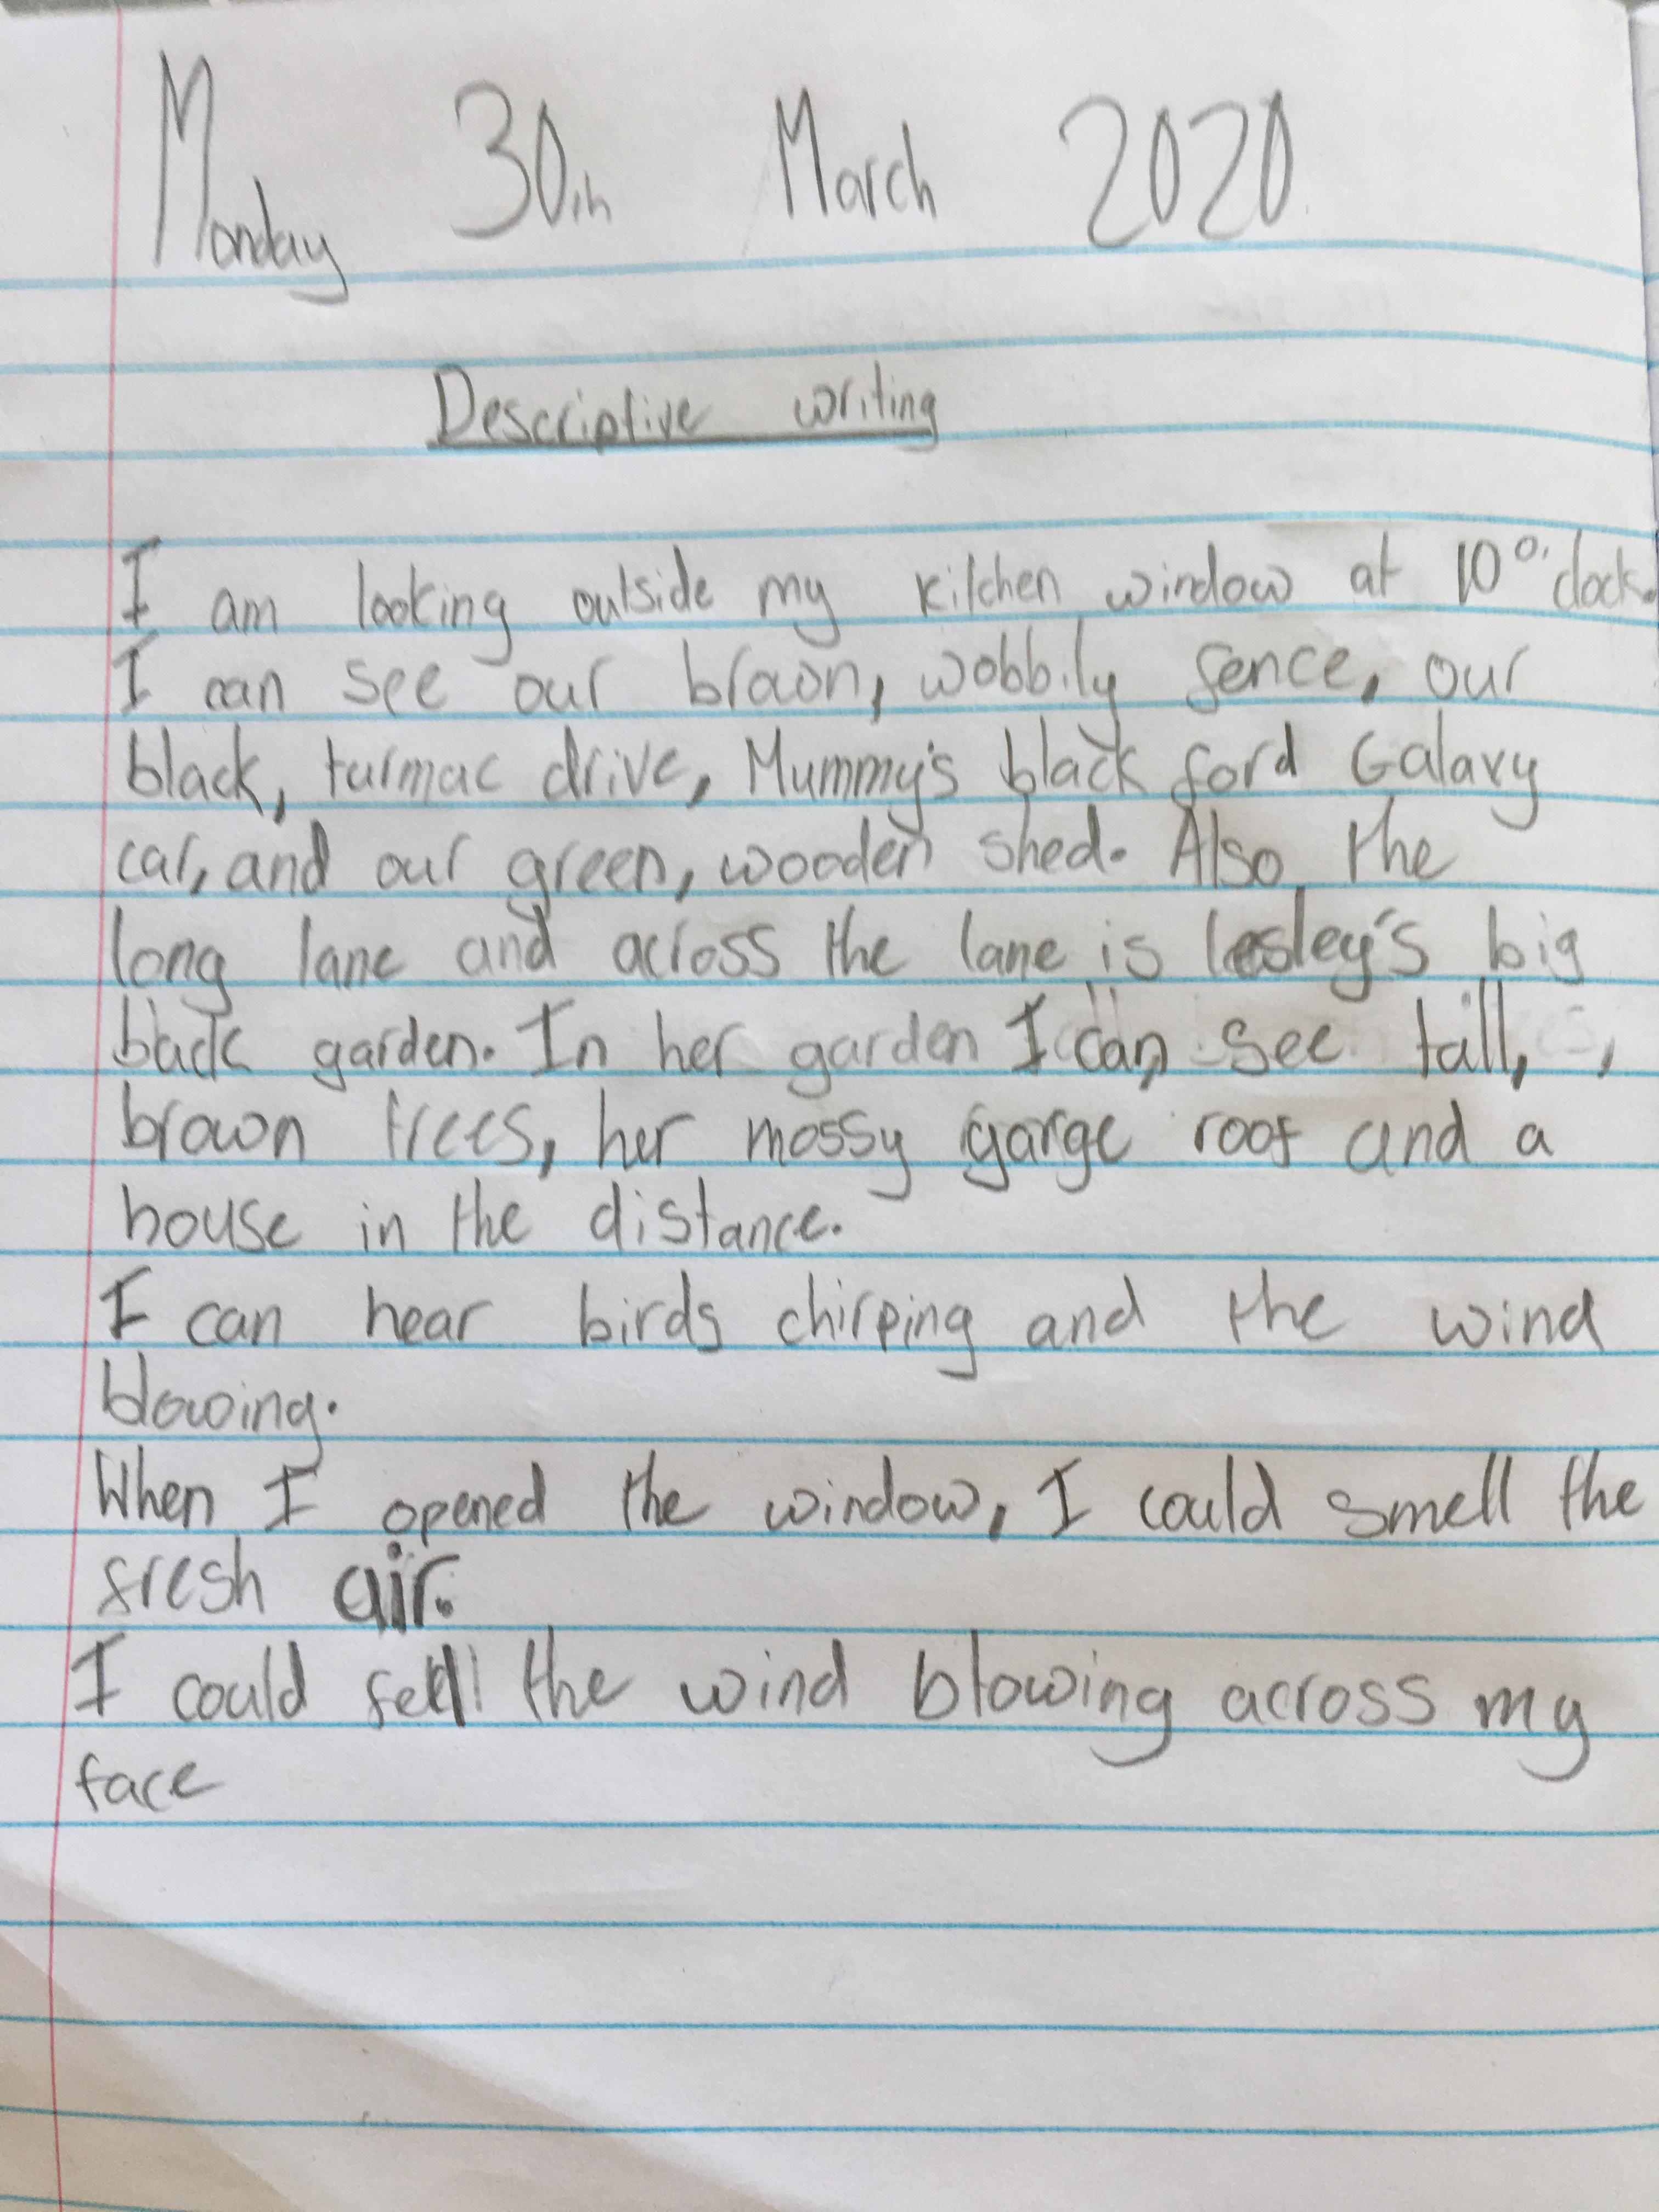 Monday 30th March 2020
Descriptive writing
I am looking outside my kitchen window at 10 o'clock.
I can see our brown, wobbily fence, our
black, turmac drive, Mummy's black ford Galaxy
car, and our green, wooden shed. Also, the
long lane and across the lane is lesley's big
back garden. In her garden I can see tall,
brown trees, her mossy garge roof and a
house in the distance.
I can hear birds chirping and the wind
blowing.
When I opened the window, I could smell the
fresh air.
I could the wind blowing across my
face